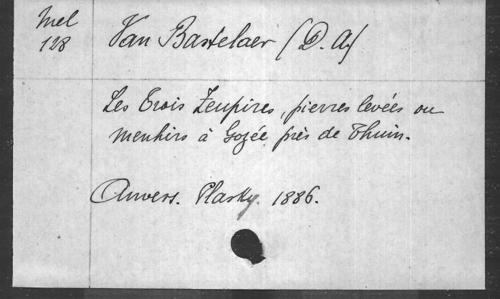 Mel
128
Van Bastelaer (D. A)
Les Trois Zeupires, pierres levées ou
menhirs à Gozée près de Thuin.
Anvers. Plasky. 1886.